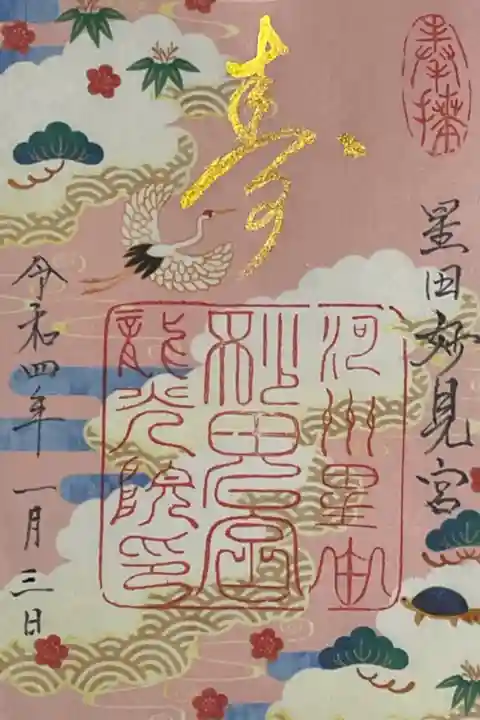 奉拝
星田妙見宮
寿
河州星田
妙見宮
龍光院印
令和四年一月三日